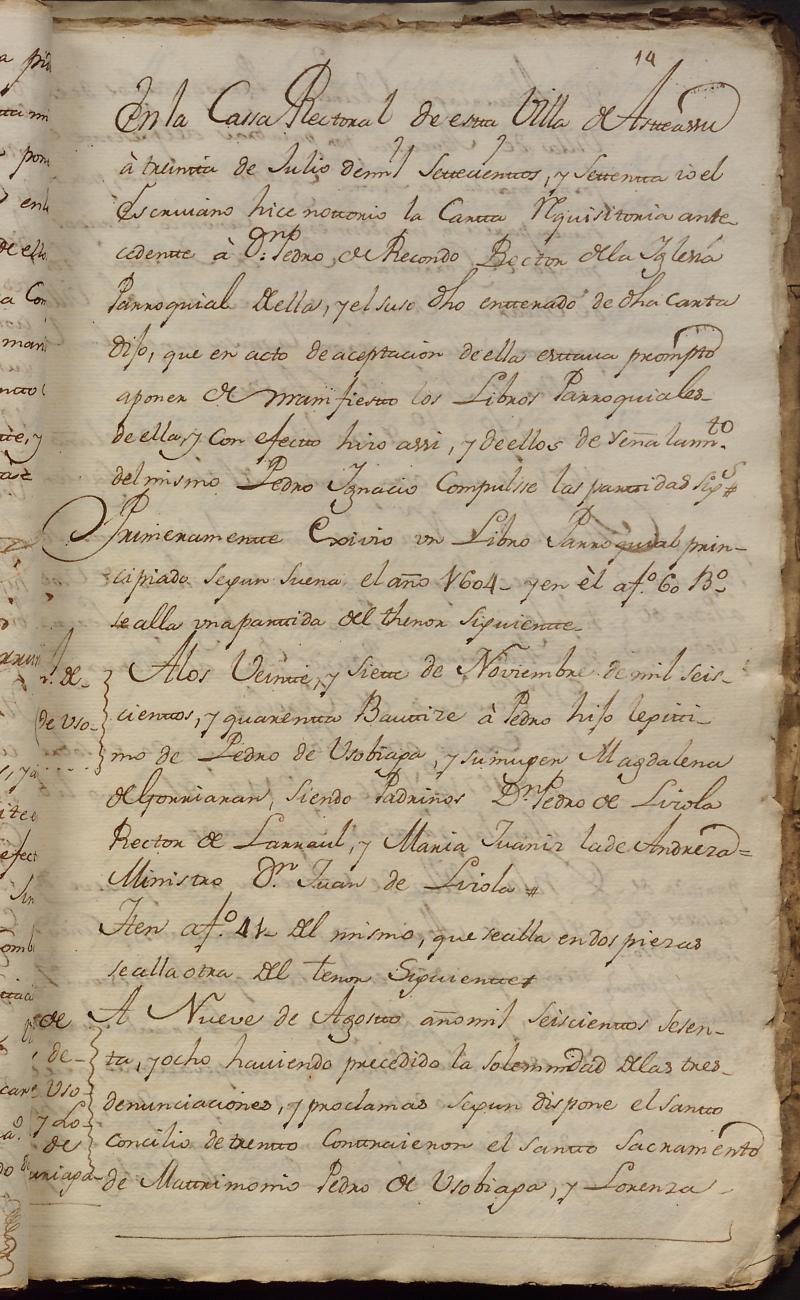 14
En la Cassa Rectoral de esta Villa de Asteassu
à treinta de Julio de mil Settecientos, y Settenta io el
Escriuano hice nottorio la Cartta Rquisitoria ante-
cedente à Dn. Pedro de Recondo Rector de la Iglesia
Parroquial de ella, y el suso dho entterado de dha Carta
dijo, que en acto de aceptacion de ella esttava prompto
a poner de manifiestto los Libros Parroquiales
de ella, y Con efectto hizo assi, y de ellos de señalamto.
del mismo Pedro Ignacio Compulsse las parttidas sigs
Primeramentte Exivio un Libro Parroquial prin-
cipiado segun suena el año 1604- y en èl a fo. 60 Bo.
se alla una parttida del thenor siguientte-
A los Veintte, y Siette de Noviembre de mil seis-
cienttos, y quarentta Bautize à Pedro hijo legitti-
mo de Pedro de Usobiaga, y su muger Magdalena
de Gorriaran, siendo Padrinos Dn. Pedro de Liola
Rector de Larraul, y Maria Juaniz la de Andreza=
Ministro Dn. Juan de Liola
Iten a fo. 41- del mismo, que se alla en dos piezas
se alla otra del tenor Siguientte
A Nueve de Agostto año mil seiscienttos sesen-
ta, y ocho haviendo precedido la solemnidad de las tres
denunciaciones, y proclamas segun dispone el santto
Concilio de trentto Conttraieron el santto Sacramento
de Mattrimonio Pedro de Usobiaga, y Lorenza
de Uso-
de
de-
Uso-
y Lo-
de